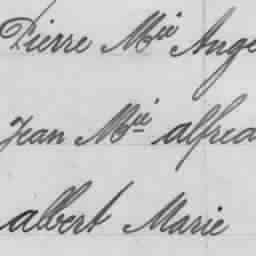 Pierre Mie Ange
Jean Mie alfred
albert Marie